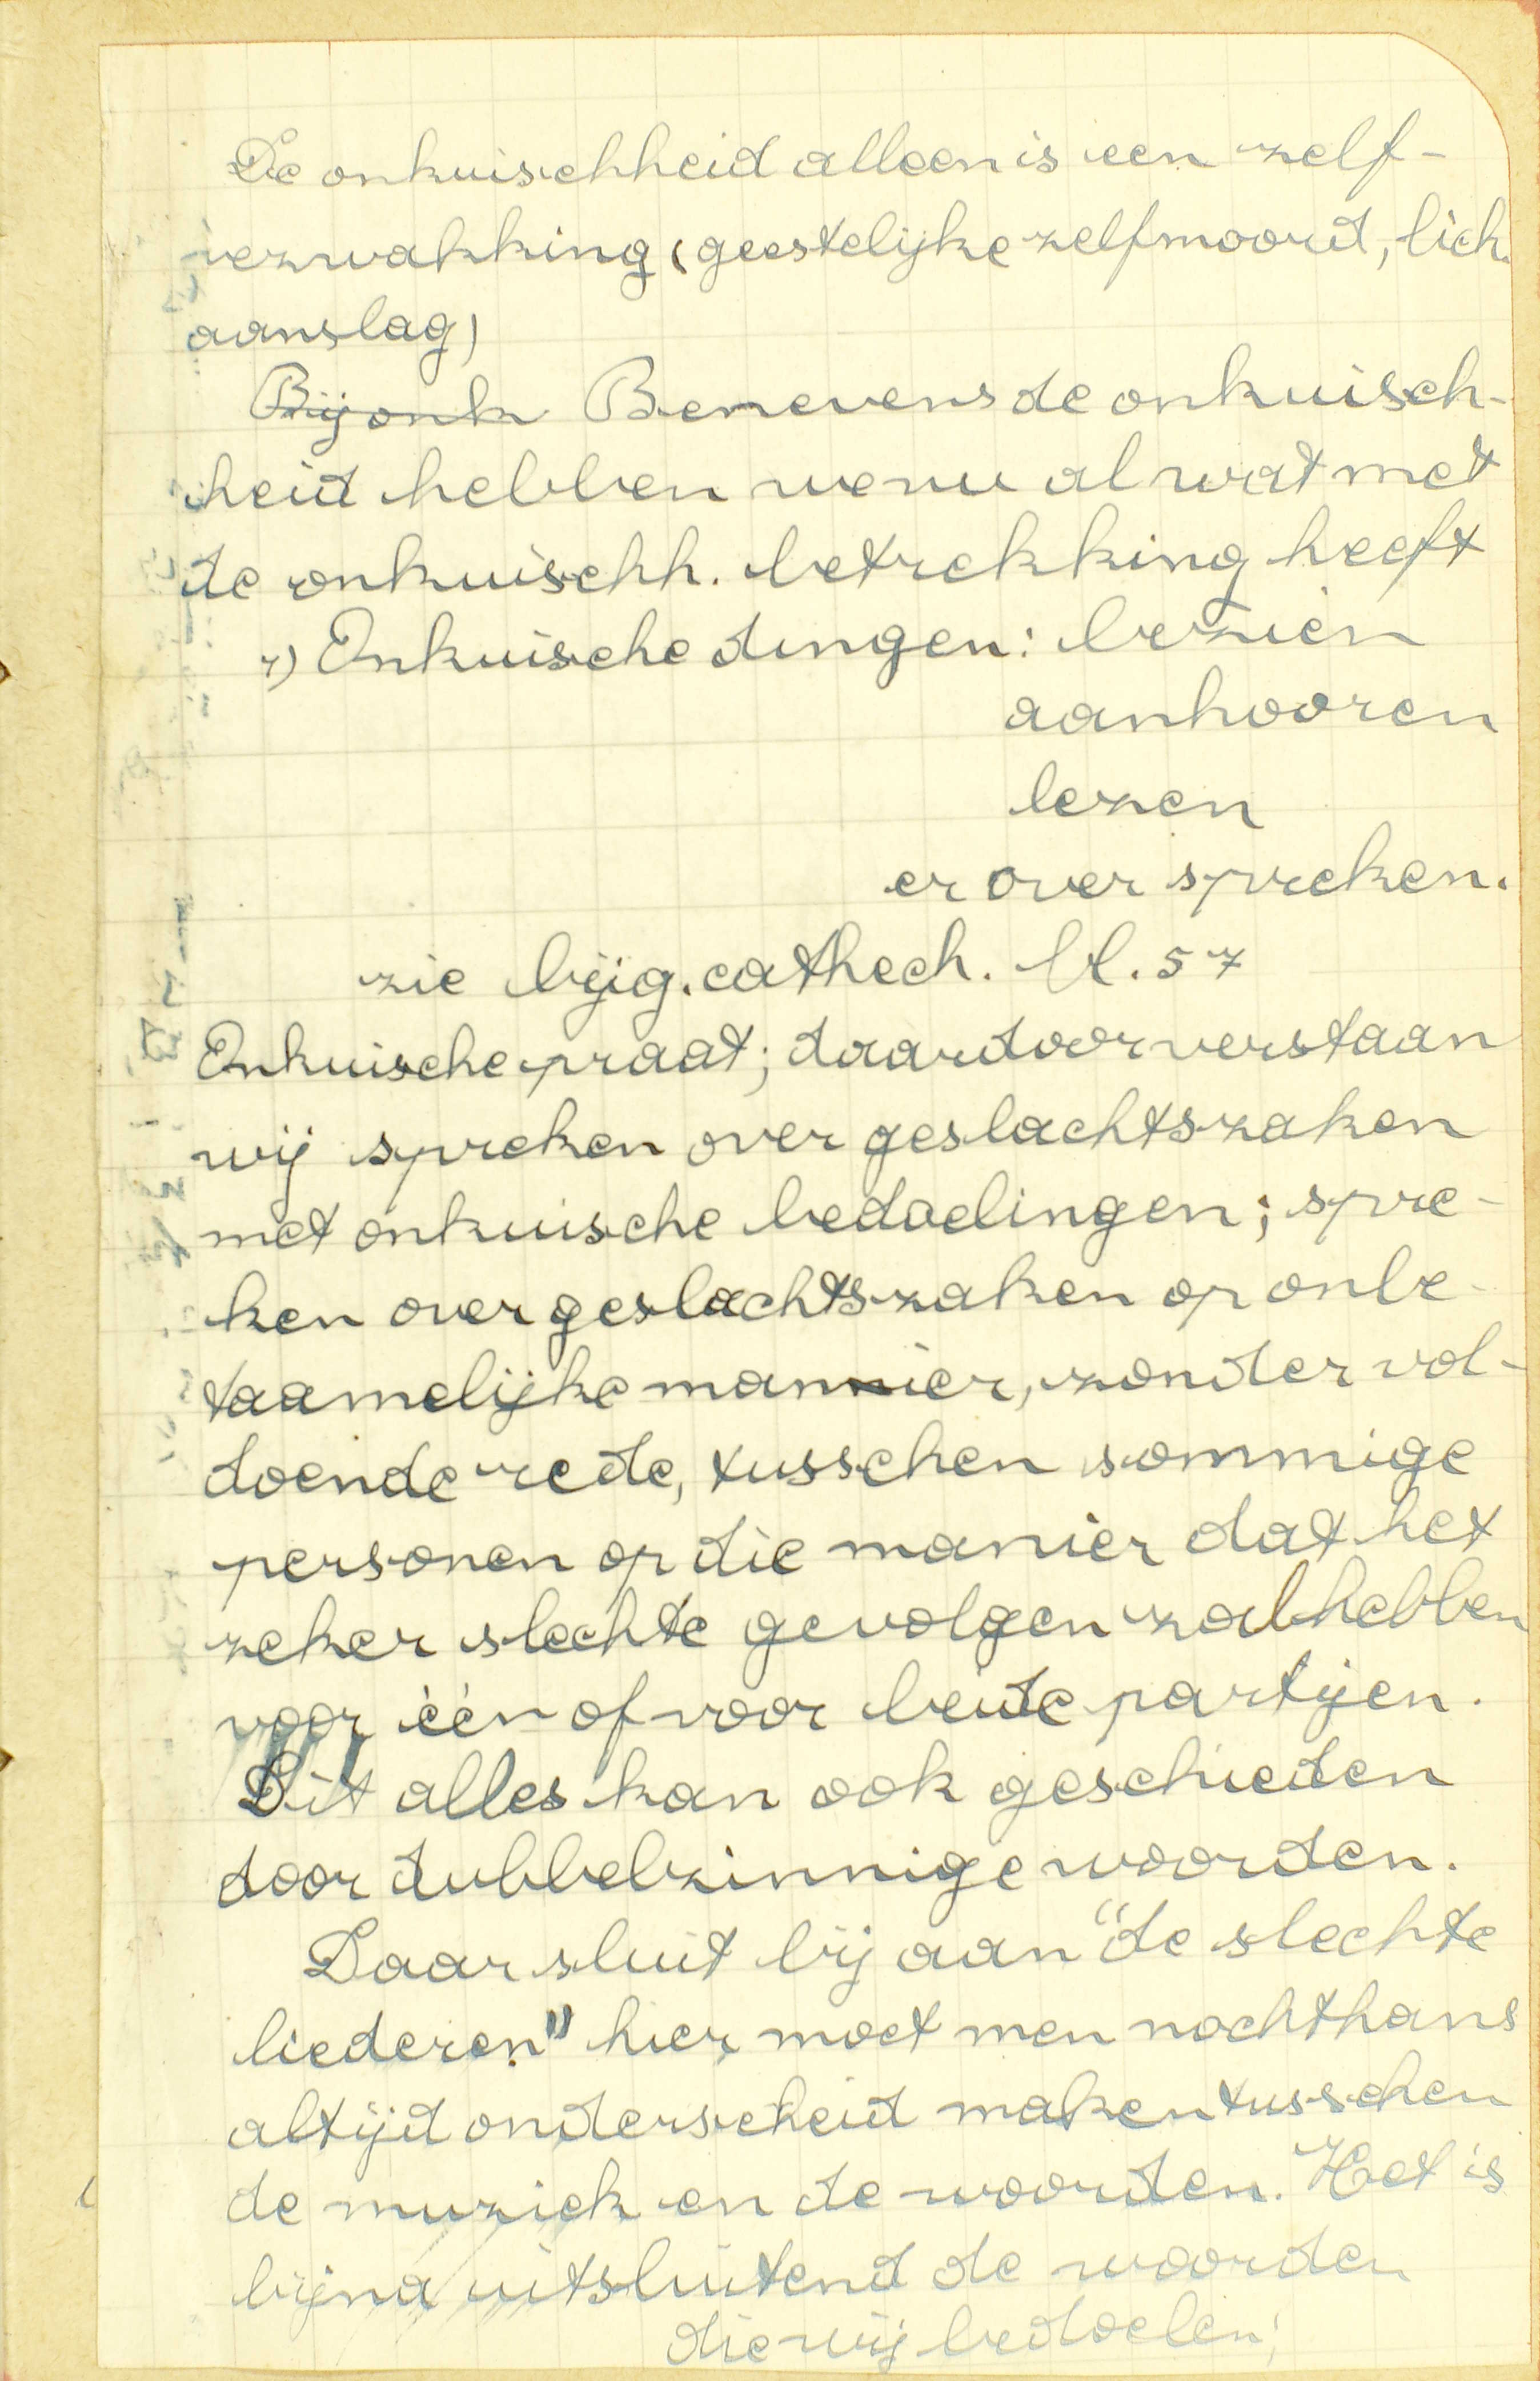 De onkuischheid alleen is een zelf-
verzwakking (geestelijke zelfmoord, lich.
aanslag)
Bij onk Benevens de onkuisch-
heid hebben we nu al wat met
de onkuischh. betrekking heeft
1) Onkuische dingen: bezien
aanhooren
lezen
er over spreken.
zie bijg. cathech. bl. 57
Onkuische praat; daardoor verstaan
wij spreken over geslachtszaken
met onkuische bedoelingen; spre-
ken over geslachtszaken op onbe-
taamelijke mannier, zonder vol-
doende rede, tusschen sommige
personen op die manier dat het
zeker slechte gevolgen zal hebben
voor één of voor beide partijen.
Dit alles kan ook geschieden
door dubbelzinnige woorden.
Daar sluit bij aan "de slechte
liederen" hier moet men nochthans
altijd onderscheid maken tusschen
de muziek en de woorden. Het is
bijna uitsluitend de woorden
die wij bedoelen;